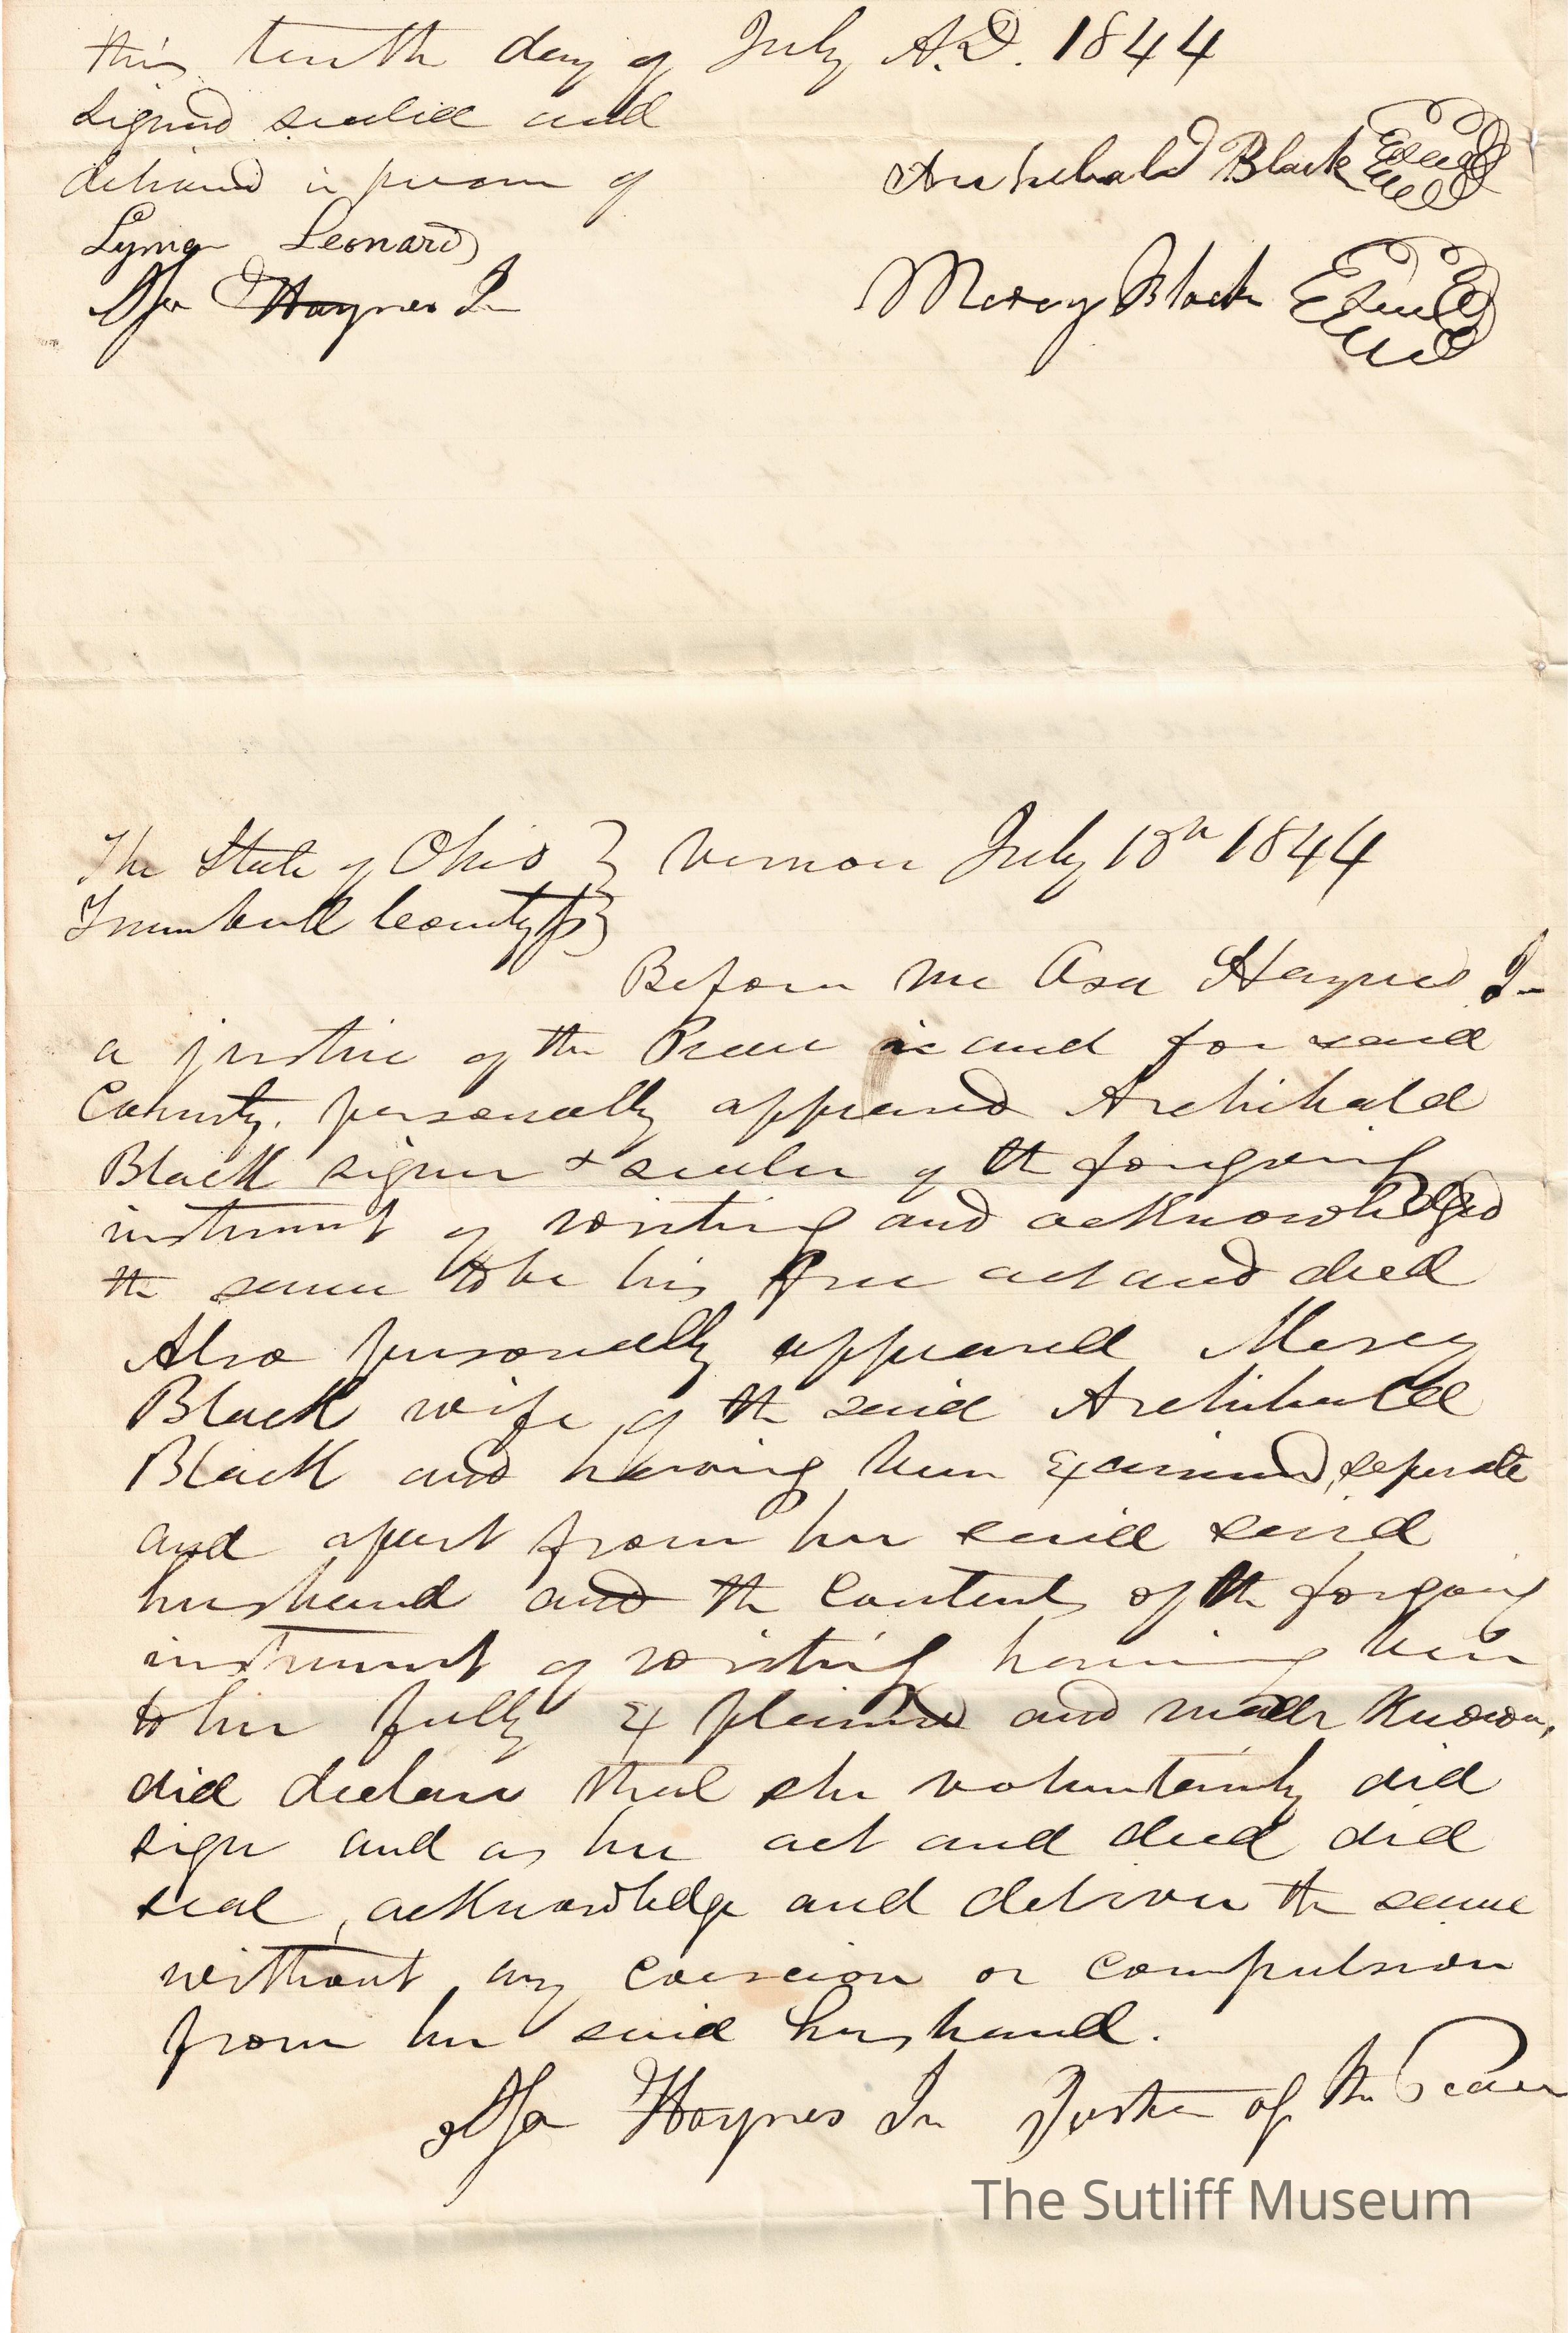 this tenth day of July A.D. 1844
signed sealed and
delivered in presence of
Archibald Black Seal
Lyman Leonard
Asa Haynes Jr
Mercy Black Seal
The State of Ohio } Vernon July 10th 1844
Trumbull County ss }
Before me Asa Haynes Jr
a justice of the Peace in and for said
County, personally appeared Archibald
Black signer & sealer of the forgoing
instrument of writing and acknowledged
the same to be his free act and deed
Also personally appeared Mercy
Black wife of the said Archibald
Black and having been Examined, seperate
and apart from her said said
husband and the Contents of the forgoing
instrument of writing having been
to her fully Explained and made known,
did declare that she voluntarily did
sign and as her act and deed did
seal, acknowledge and deliver the same
without any Coercion or compulsion
from her said husband.
Asa Haynes Jr Justice of the Peace
The Sutliff Museum